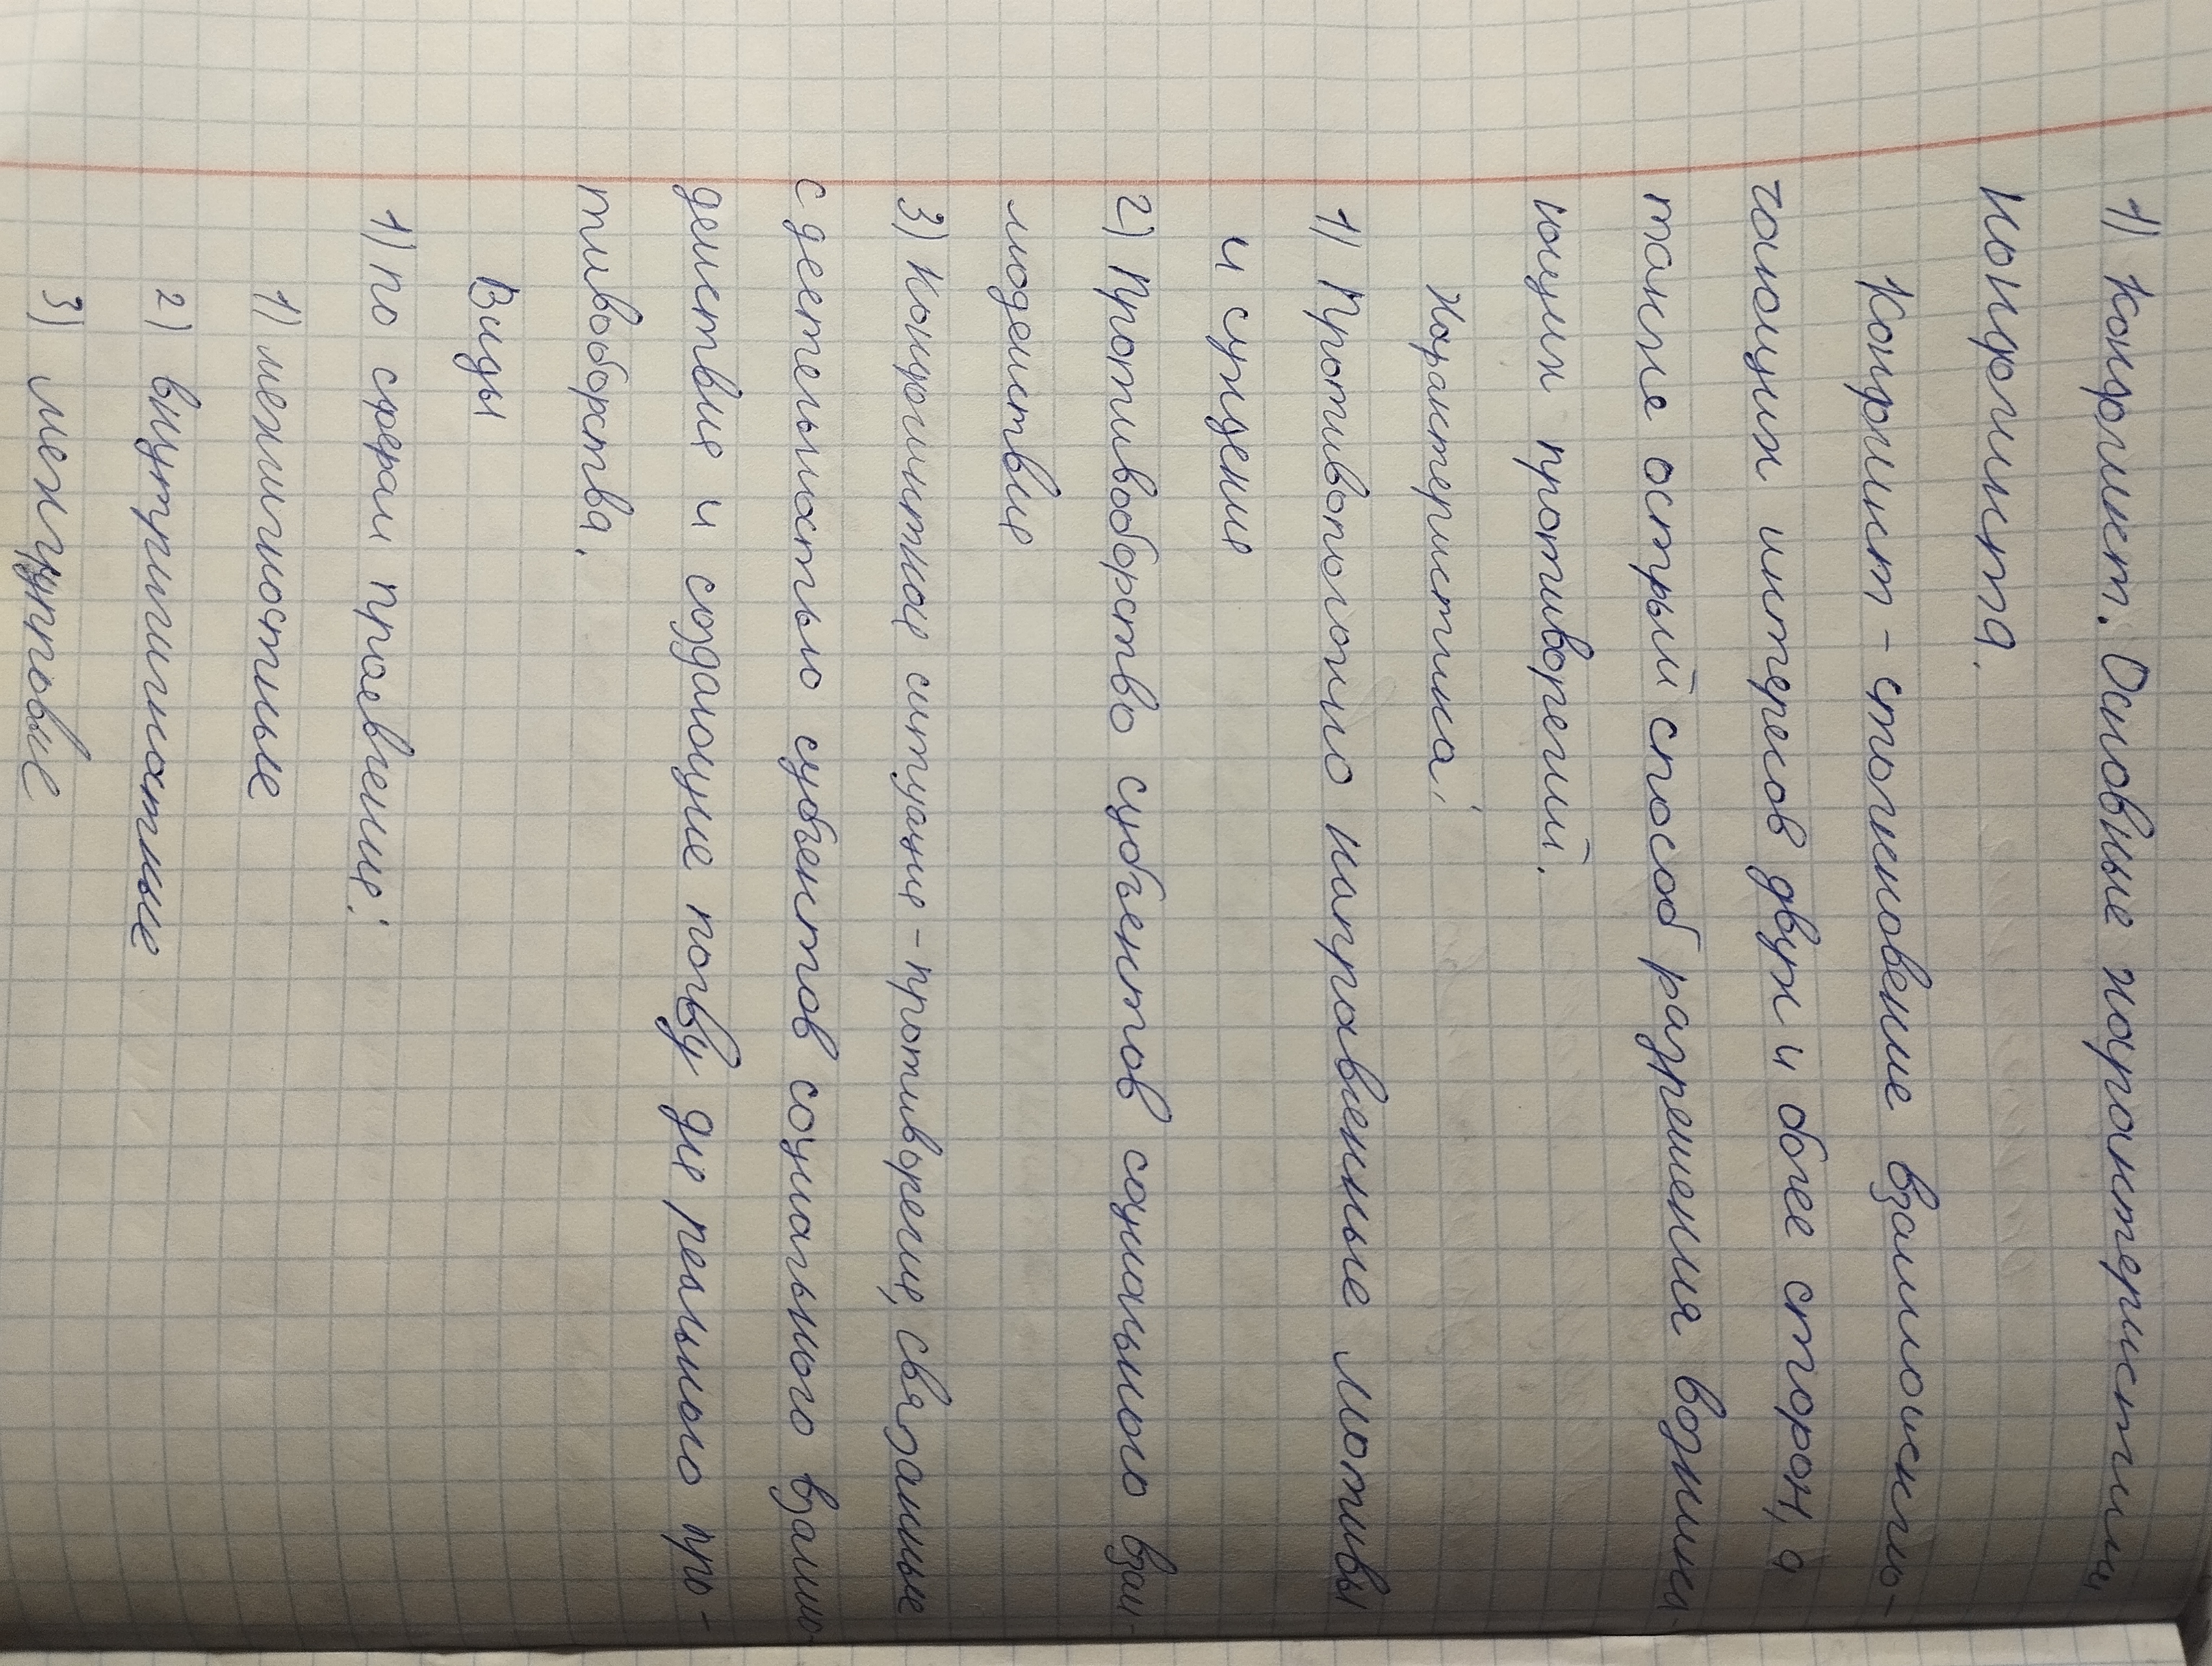 1) Конфликт. Основные характеристики
конфликта.
Конфликт - столкновение взаимоисклю-
чающих интересов двух и более сторон, а
также острый способ разрешения возника-
ющих противоречий.
Характеристика:
1) Противоположно направленные мотивы
и суждение
2) Противоборство субъектов социального взаи-
модействие
3) Конфликтное ситуацие - противоречие, связанные
с деетельностью субъектов социального взаимо
действие и создающие почву дле реального про-
тивоборства.
Виды
1) По сферам проевление:
1) межличностные
2) внутриличностные
3) межгрупповые